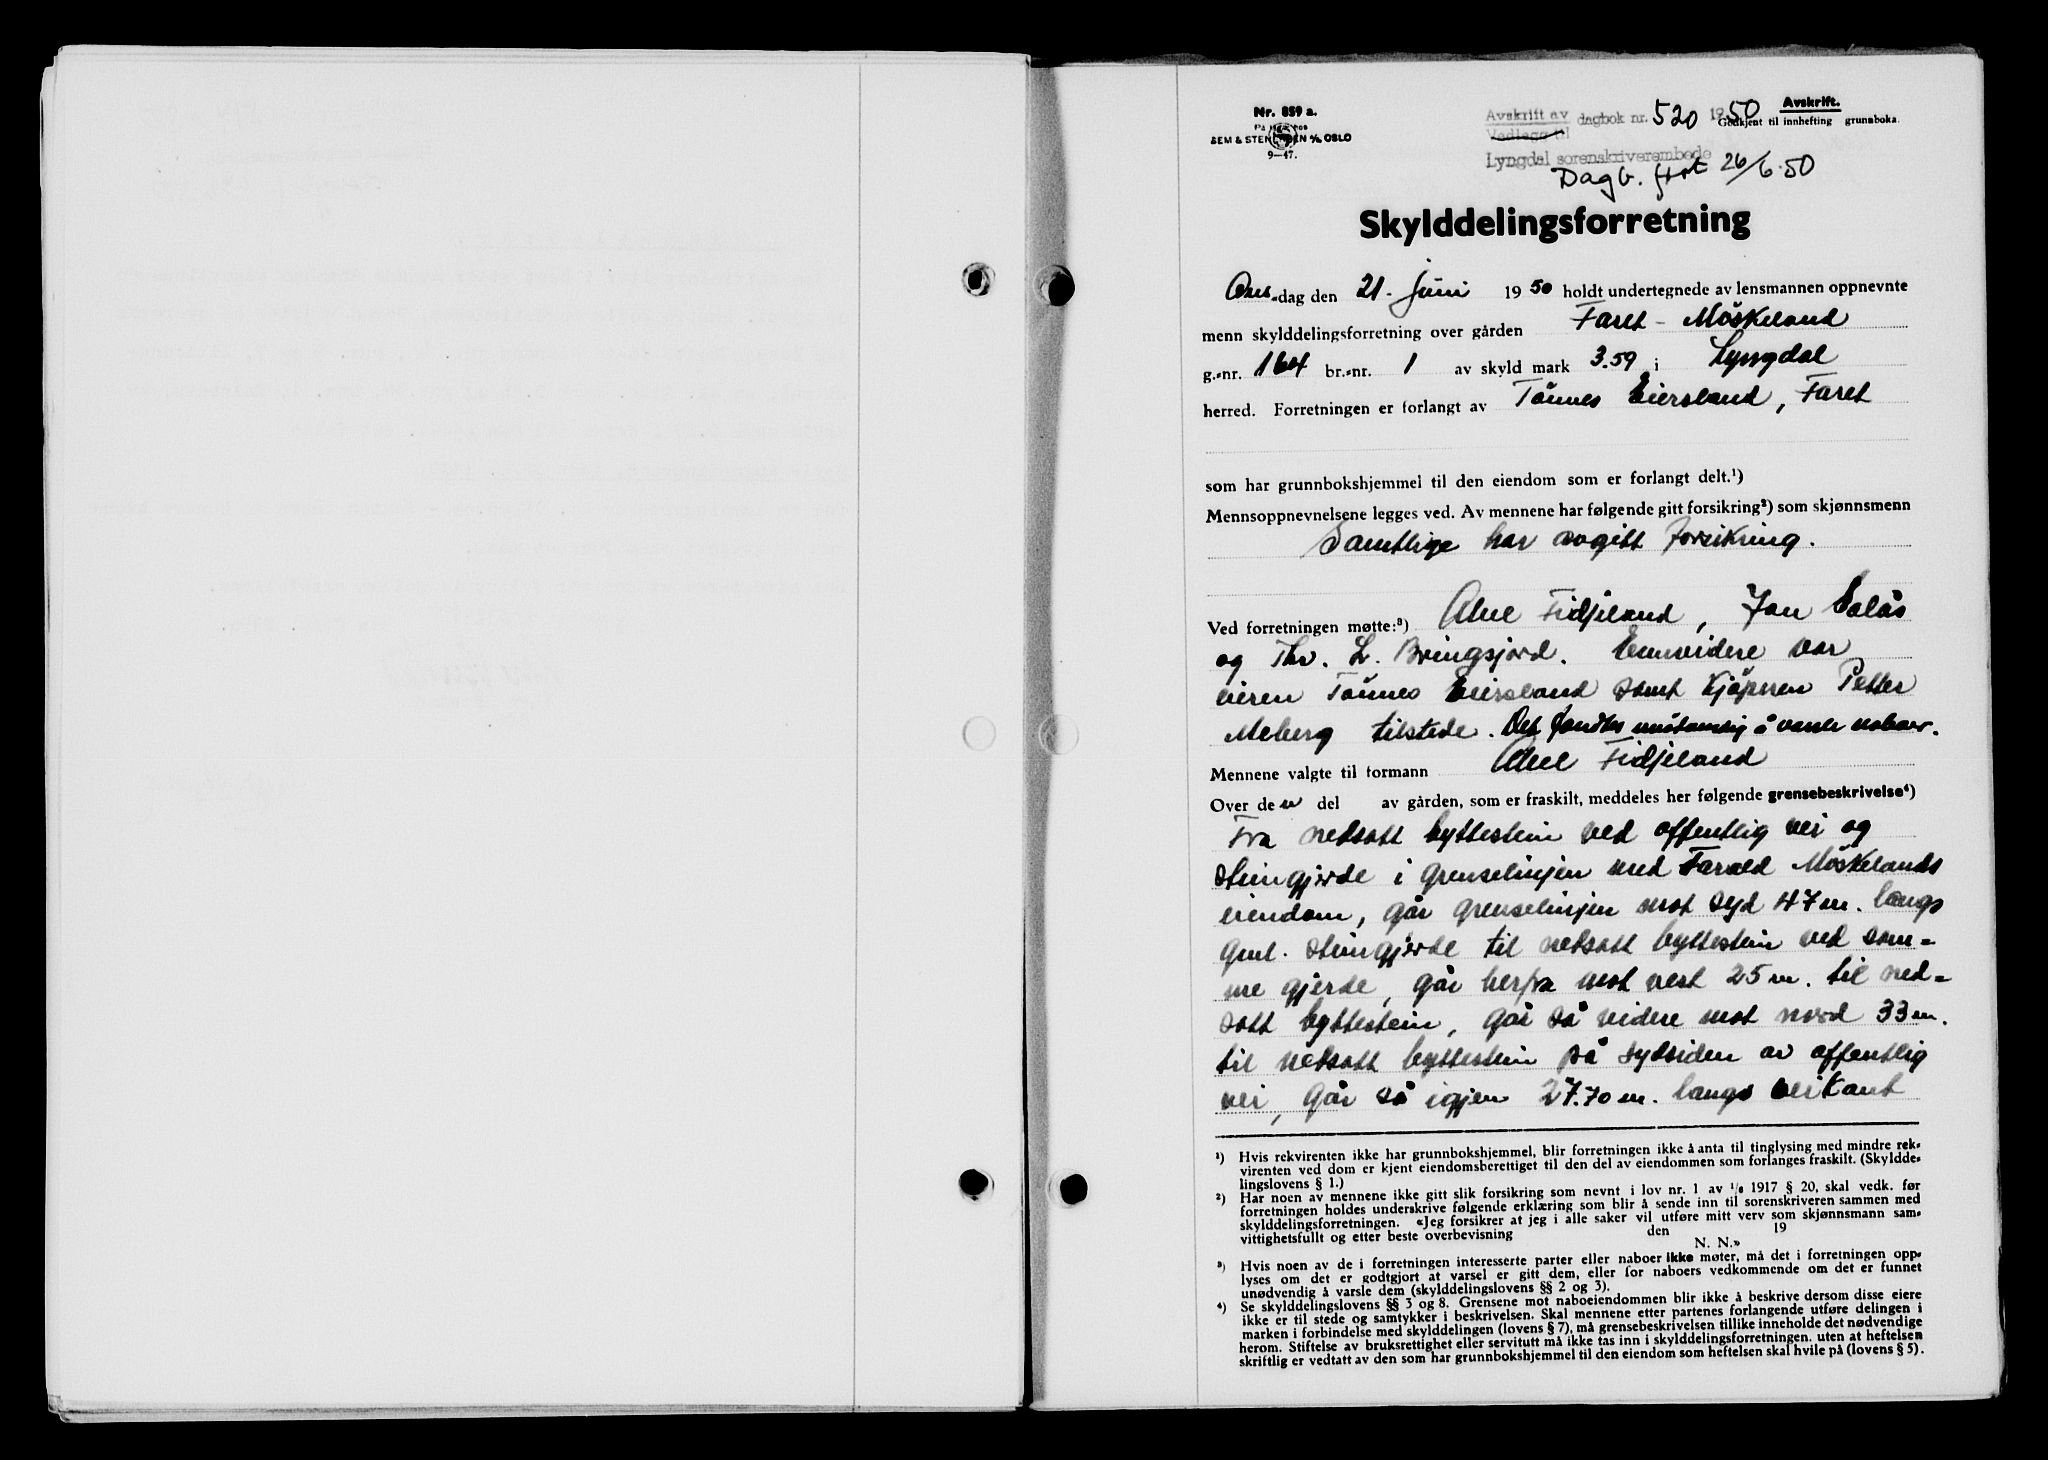 Nr. 859 a.
SEM & STENERSEN A/S OSLO
9—47.
Avskrift av
Vedlegg til
dagbok nr. 520 1950
Lyngdal sorenskriverembede
Avskrift.
Godkjent til innhefting grunnboka.
Dagb. ført 26/6.50
Skylddelingsforretning
Ons-dag den 21. juni 1950 holdt undertegnede av lensmannen oppnevnte
menn skylddelingsforretning over gården Faret - Möskeland
g.-nr. 164 br.-nr. 1 av skyld mark 3.59 i Lyngdal
herred. Forretningen er forlangt av Tönnes Eiersland, Faret
som har grunnbokshjemmel til den eiendom som er forlangt delt.¹)
Mennsoppnevnelsene legges ved. Av mennene har følgende gitt forsikring²) som skjønnsmenn
Samtlige har avgitt forsikring.
Ved forretningen møtte:³) Abel Fidjeland, Jan Salås
og Thv. L. Bringsjord. Ennvidere var
eieren Tönnes Eiersland samt kjöperen Petter
Meberg tilstede. Det fandtes unödvendig å varsle naboer.
Mennene valgte til formann Abel Fidjeland
Over den del av gården, som er fraskilt, meddeles her følgende grensebeskrivelse⁴)
Fra nedsatt byttestein ved offentlig vei og
steingjerde i grenselinjen med Farald Möskelands
eiendom, går grenselinjen mot syd 47 m. langs
gml. steingjerde til nedsatt byttestein ved sam-
me gjerde, går herfra mot vest 25 m. til ned-
satt byttestein, går så videre mot nord 33 m.
til nedsatt byttestein på sydsiden av offentlig
vei, går så igjen 27.70 m. langs veikant
¹) Hvis rekvirenten ikke har grunnbokshjemmel, blir forretningen ikke å anta til tinglysing med mindre rek-
virenten ved dom er kjent eiendomsberettiget til den del av eiendommen som forlanges fraskilt. (Skyldde-
lingslovens § 1.)
²) Har noen av mennene ikke gitt slik forsikring som nevnt i lov nr. 1 av 1/6 1917 § 20, skal vedk. før
forretningen holdes underskrive følgende erklæring som blir å sende inn til sorenskriveren sammen med
skylddelingsforretningen. «Jeg forsikrer at jeg i alle saker vil utføre mitt verv som skjønnsmann sam-
vittighetsfullt og etter beste overbevisning den 19
N. N.»
³) Hvis noen av de i forretningen interesserte parter eller naboer ikke møter, må det i forretningen opp-
lyses om det er godtgjort at varsel er gitt dem, eller for naboers vedkommende om det er funnet
unødvendig å varsle dem (skylddelingslovens §§ 2 og 3).
⁴) Se skylddelingslovens §§ 3 og 8. Grensene mot naboeiendommen blir ikke å beskrive dersom disse eiere
ikke er til stede og samtykker i beskrivelsen. Skal mennene etter partenes forlangende utføre delingen i
marken i forbindelse med skylddelingen (lovens § 7), må grensebeskrivelsen tillike inneholde det nødvendige
herom. Stiftelse av bruksrettighet eller servitutt må ikke tas inn i skylddelingsforretningen. uten at heftelsen
skriftlig er vedtatt av den som har grunnbokshjemmel til den eiendom som heftelsen skal hvile på (lovens § 5).